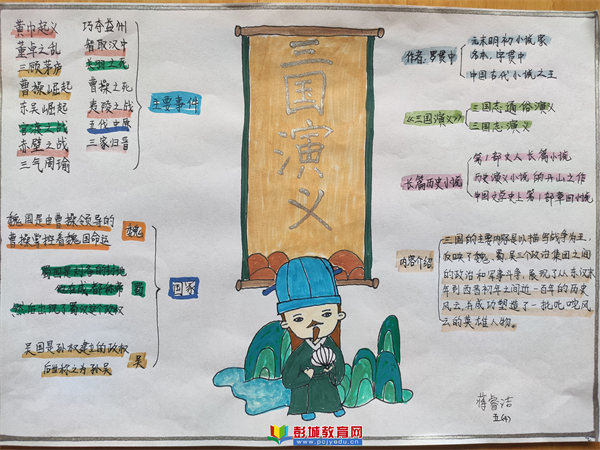 黄巾起义
董卓之乱
三顾茅庐
曹操崛起
东吴崛起
官渡之战
赤壁之战
三气周瑜
巧夺益州
智取汉中
关羽之死
曹操之死
夷陵之战
三家归晋
主要事件
三国演义
作者：罗贯中
元末明初小说家
名本，字贯中
中国古代小说之王
《三国演义》
三国志通俗演义
三国志演义
长篇历史小说
第1部文人长篇小说
历史演义小说的开山之作
中国文学史上第1部章回小说
内容介绍
三国的主要内容是以描写战争为主，
反映了魏、蜀、吴三个政治集团之间
的政治和军事斗争，展现了从东汉末
年到西晋初年之间近一百年的历史
风云，并成功塑造了一批叱咤风
云的英雄人物。
魏国是由曹操领导的
曹操掌控着魏国命运
魏
蜀
国家
吴国是孙权建立的政权
后世称之为孙吴
吴
蒋睿洁
五(4)
彭城教育网
www.pcjyedu.cn